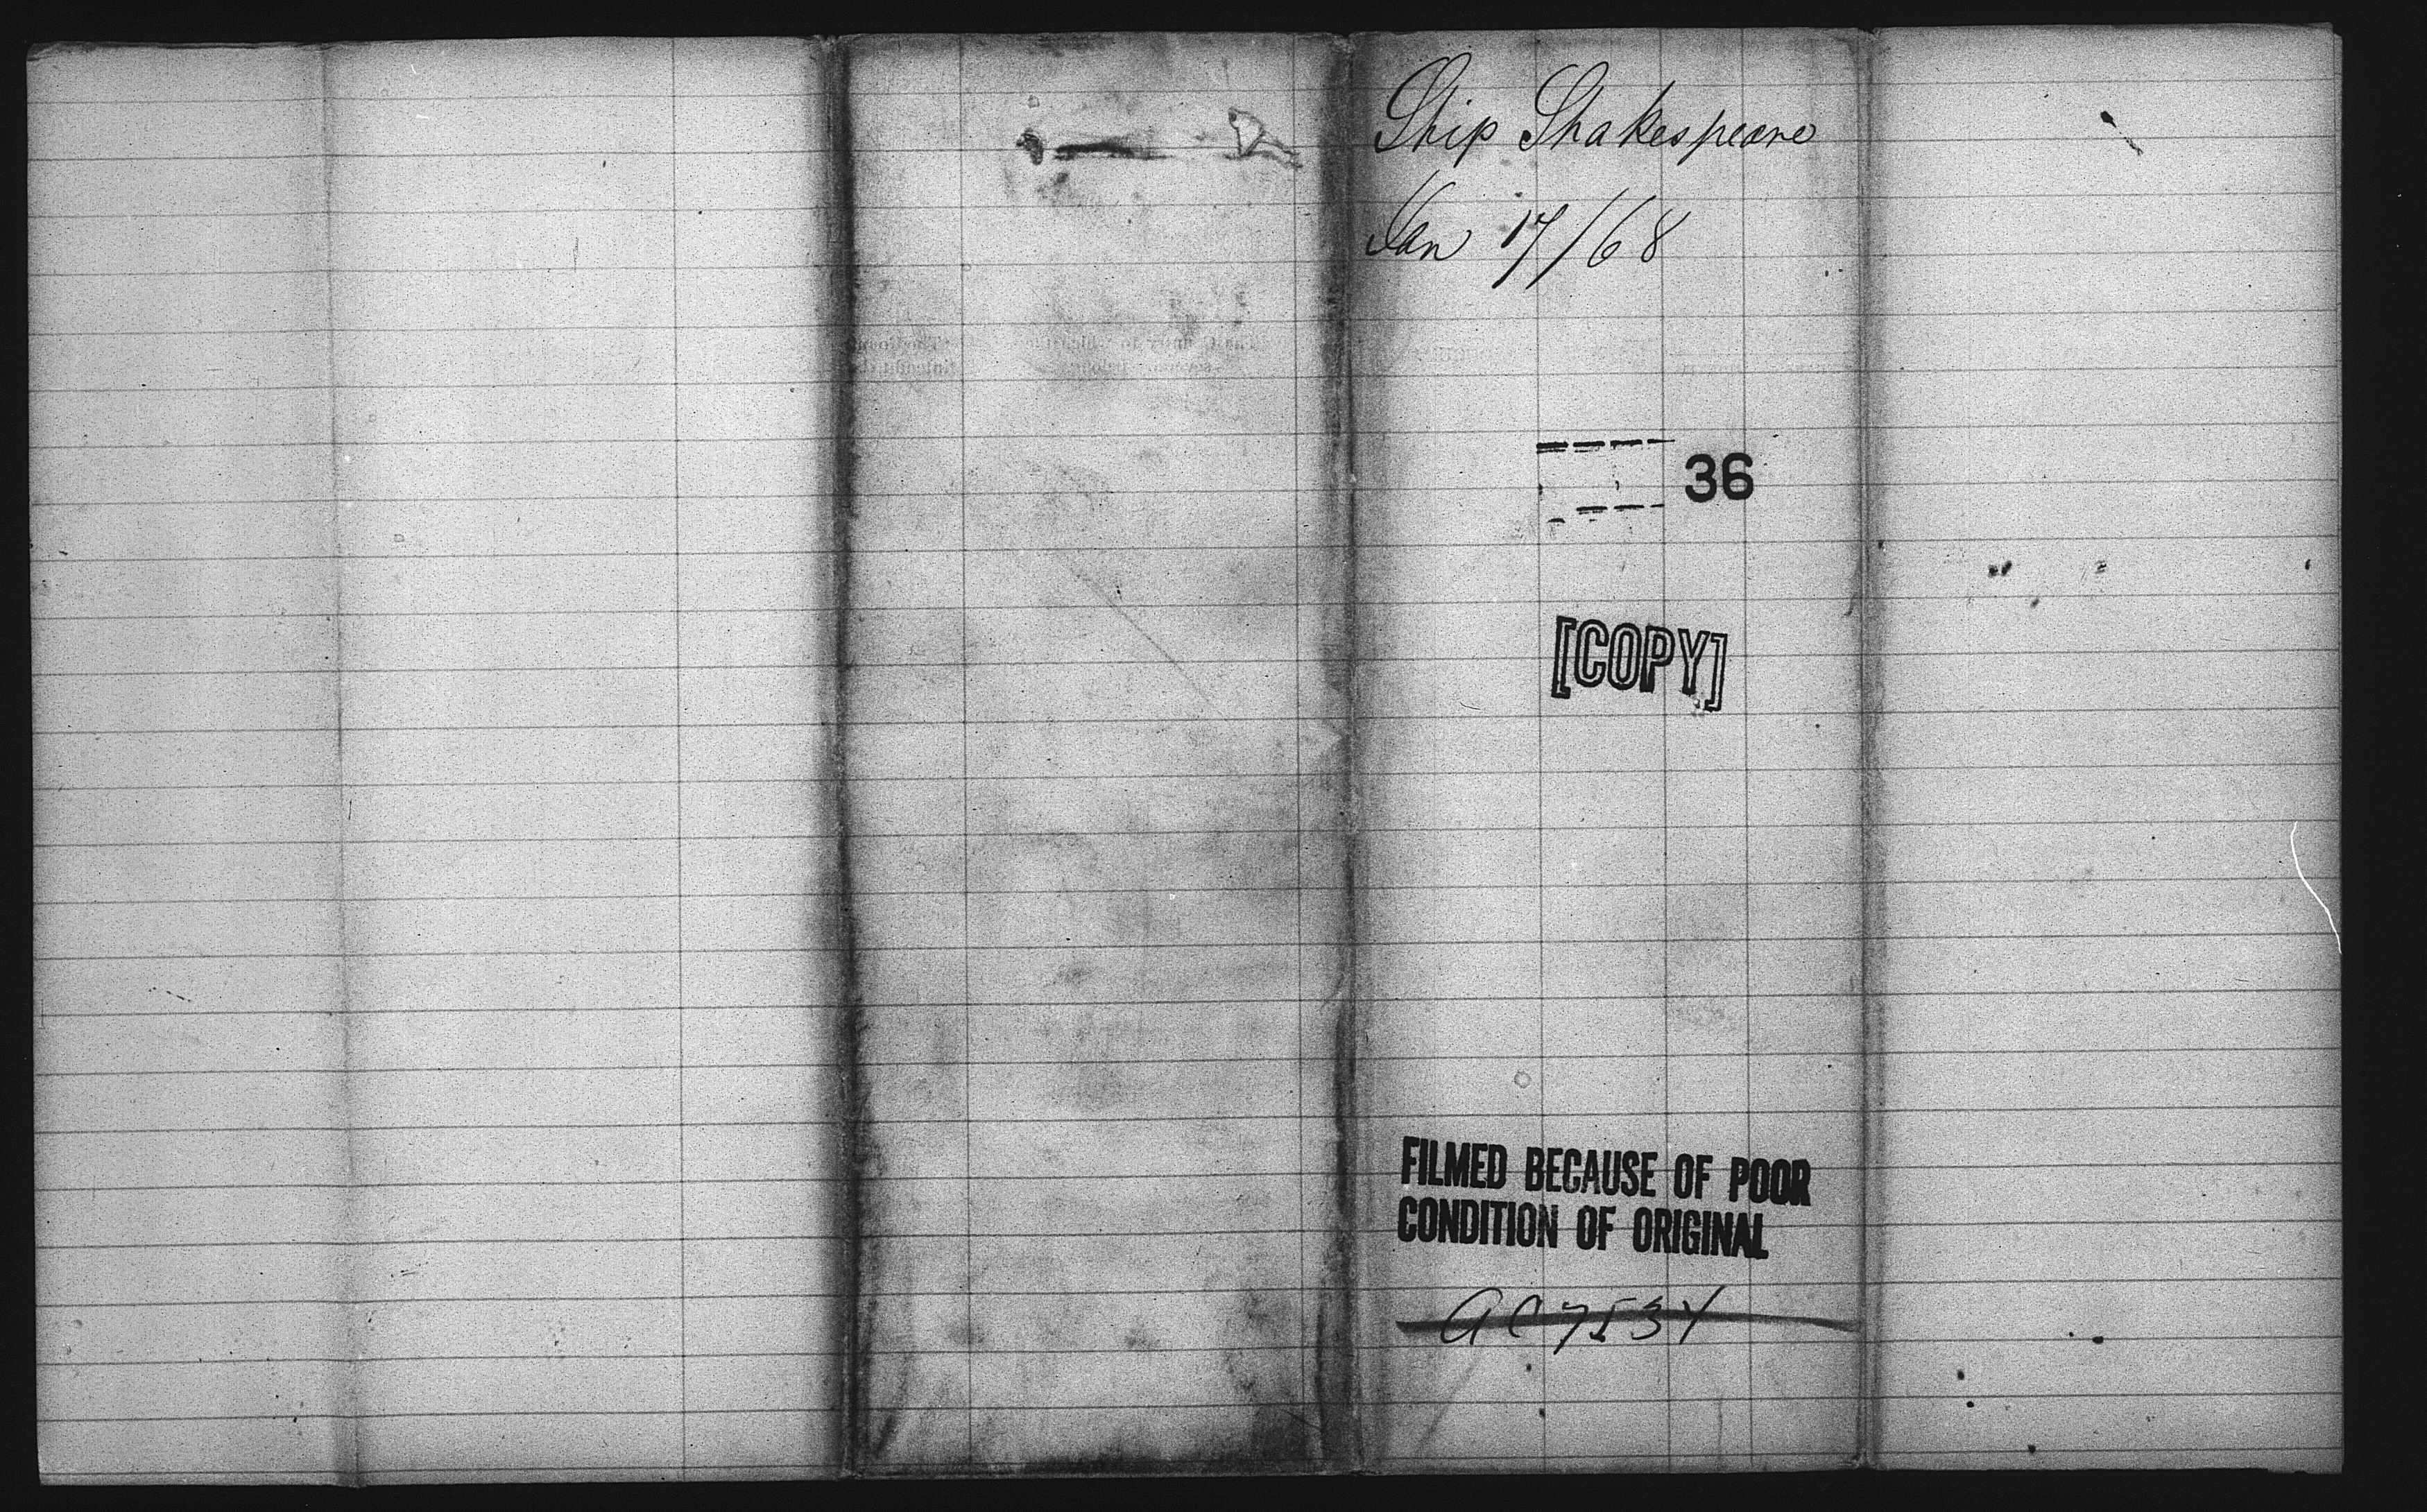 Ship Shakespeare
Jan 17/68
36
[COPY]
FILMED BECAUSE OF POOR
CONDITION OF ORIGINAL